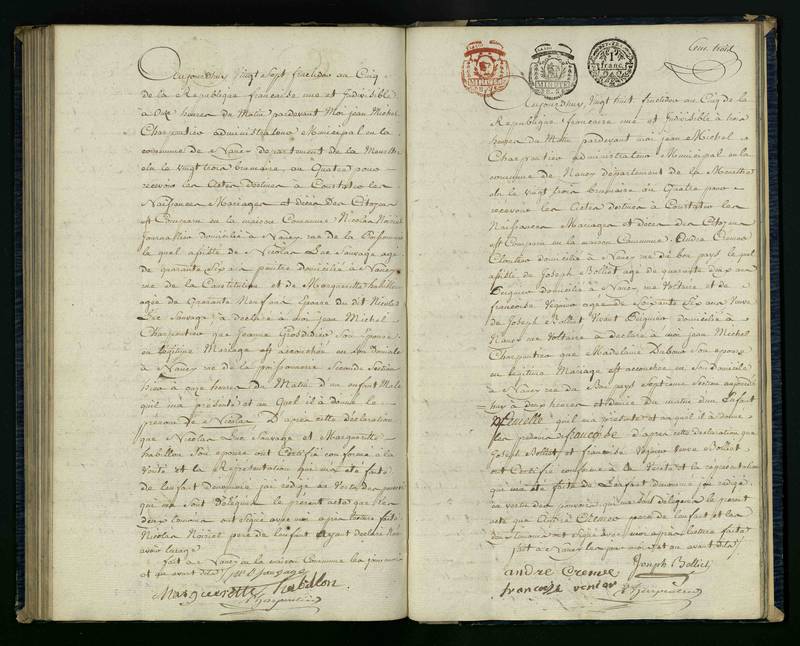 Aujourd'huy Vingt Sept fructidor an Cinq
de la Republique francaise une et Indivisible
a Onze heures du Matin pardevant Moi jean Michel
Charpentier administrateur Municipal en la
commune de Nancy departement de la Meurthe
elu le vingt trois brumaire an Quatre pour
recevoir les Actes destinés a Constater les
Naissances Mariages et Décés des Citoyens
est Comparu en la maison Commune Nicolas Noriel
Journalier domicilié a Nancy rue de la Poissonnerie
lequel assisté de Nicolas Luc Sauvage agé
de quarante Six ans peintre domicilié a Nancy
rue de la Constitution et de Margueritte habillon
agée de Quarante Neuf ans Epouse du dit Nicolas
Luc Sauvage a déclaré à moi jean Michel
Charpentier que Jeanne Grosdidier Son Epouse
en légitime Mariage est accouchée en Son Domicile
a Nancy rue de la poissonnerie Seconde Section
hier a onze heures du Matin d'un enfant Male
quil ma présenté et au Quel il a donné le
prenom de Nicolas D'après cette déclaration
que Nicolas Luc Sauvage et Marguerite
habillon Son epouse ont Certifié conforme a la
Verité et la Représentation qui ma été faite
de lenfant denommé jai rédigé en Vertu des pouvoirs
qui me sont délégués le présent acte que les
deux temoins ont Signé avec moi après lecture faite
Nicolas Noriel pere de lenfant ayant déclaré Ne
avoir lusage
fait a Nancy en la maison Commune les jour mois
et an avant dits
Sauvage
Marguerritte habillon
Charpentier
1
franc
Cent trois
Aujourd'huy Vingt huit fructidor an Cinq de la
Republique francaise une et Indivisible à trois
heures du Matin pardevant moi jean Michel
Charpentier administrateur Municipal en la
commune de Nancy departement de la Meurthe
elu le vingt trois brumaire an Quatre pour
recevoir les Actes destinés a Constater les
Naissances Mariages et Décés des Citoyens
est Comparu en la maison Commune André Cremee
Cloutier domicilié a Nancy rue du bon pays le quel
assisté de Joseph Bolliet agé de quarante deux ans
domicilié a Nancy rue Voltaire et de
francoise agée de Soixante Six ans Veuve
de Joseph Bolliet Vivant domiciliée à
Nancy rue Voltaire a déclaré à moi jean Michel
Charpentier que Madelaine Son epouse
en legitime Mariage est accouchée en Son domicile
a Nancy rue du Bon pays Septieme Section aujourd
huy a deux heures et demie du matin d'un Enfant
femelle quil ma presenté et auquel il a donné
les prenoms de francoise d'après cette déclaration que
Joseph Bolliet et francoise Veuve Bolliet
ont Certifié conforme a la Verité et la representation
qui ma été faite de lenfant denommé jai redigé
en vertu des pouvoirs qui me sont délégués le present
acte que André Cremee pere de lenfant et les
deux temoins ont signé avec moi apres lecture faite
fait a Nancy les jour mois et an avant dits
andré Cremee Joseph Bolliet
francoise
Charpentier